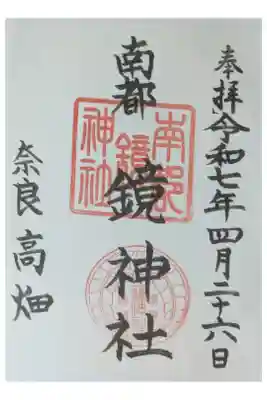 奉拝令和七年四月二十六日
南都鏡神社
奈良高畑
南都鏡神社